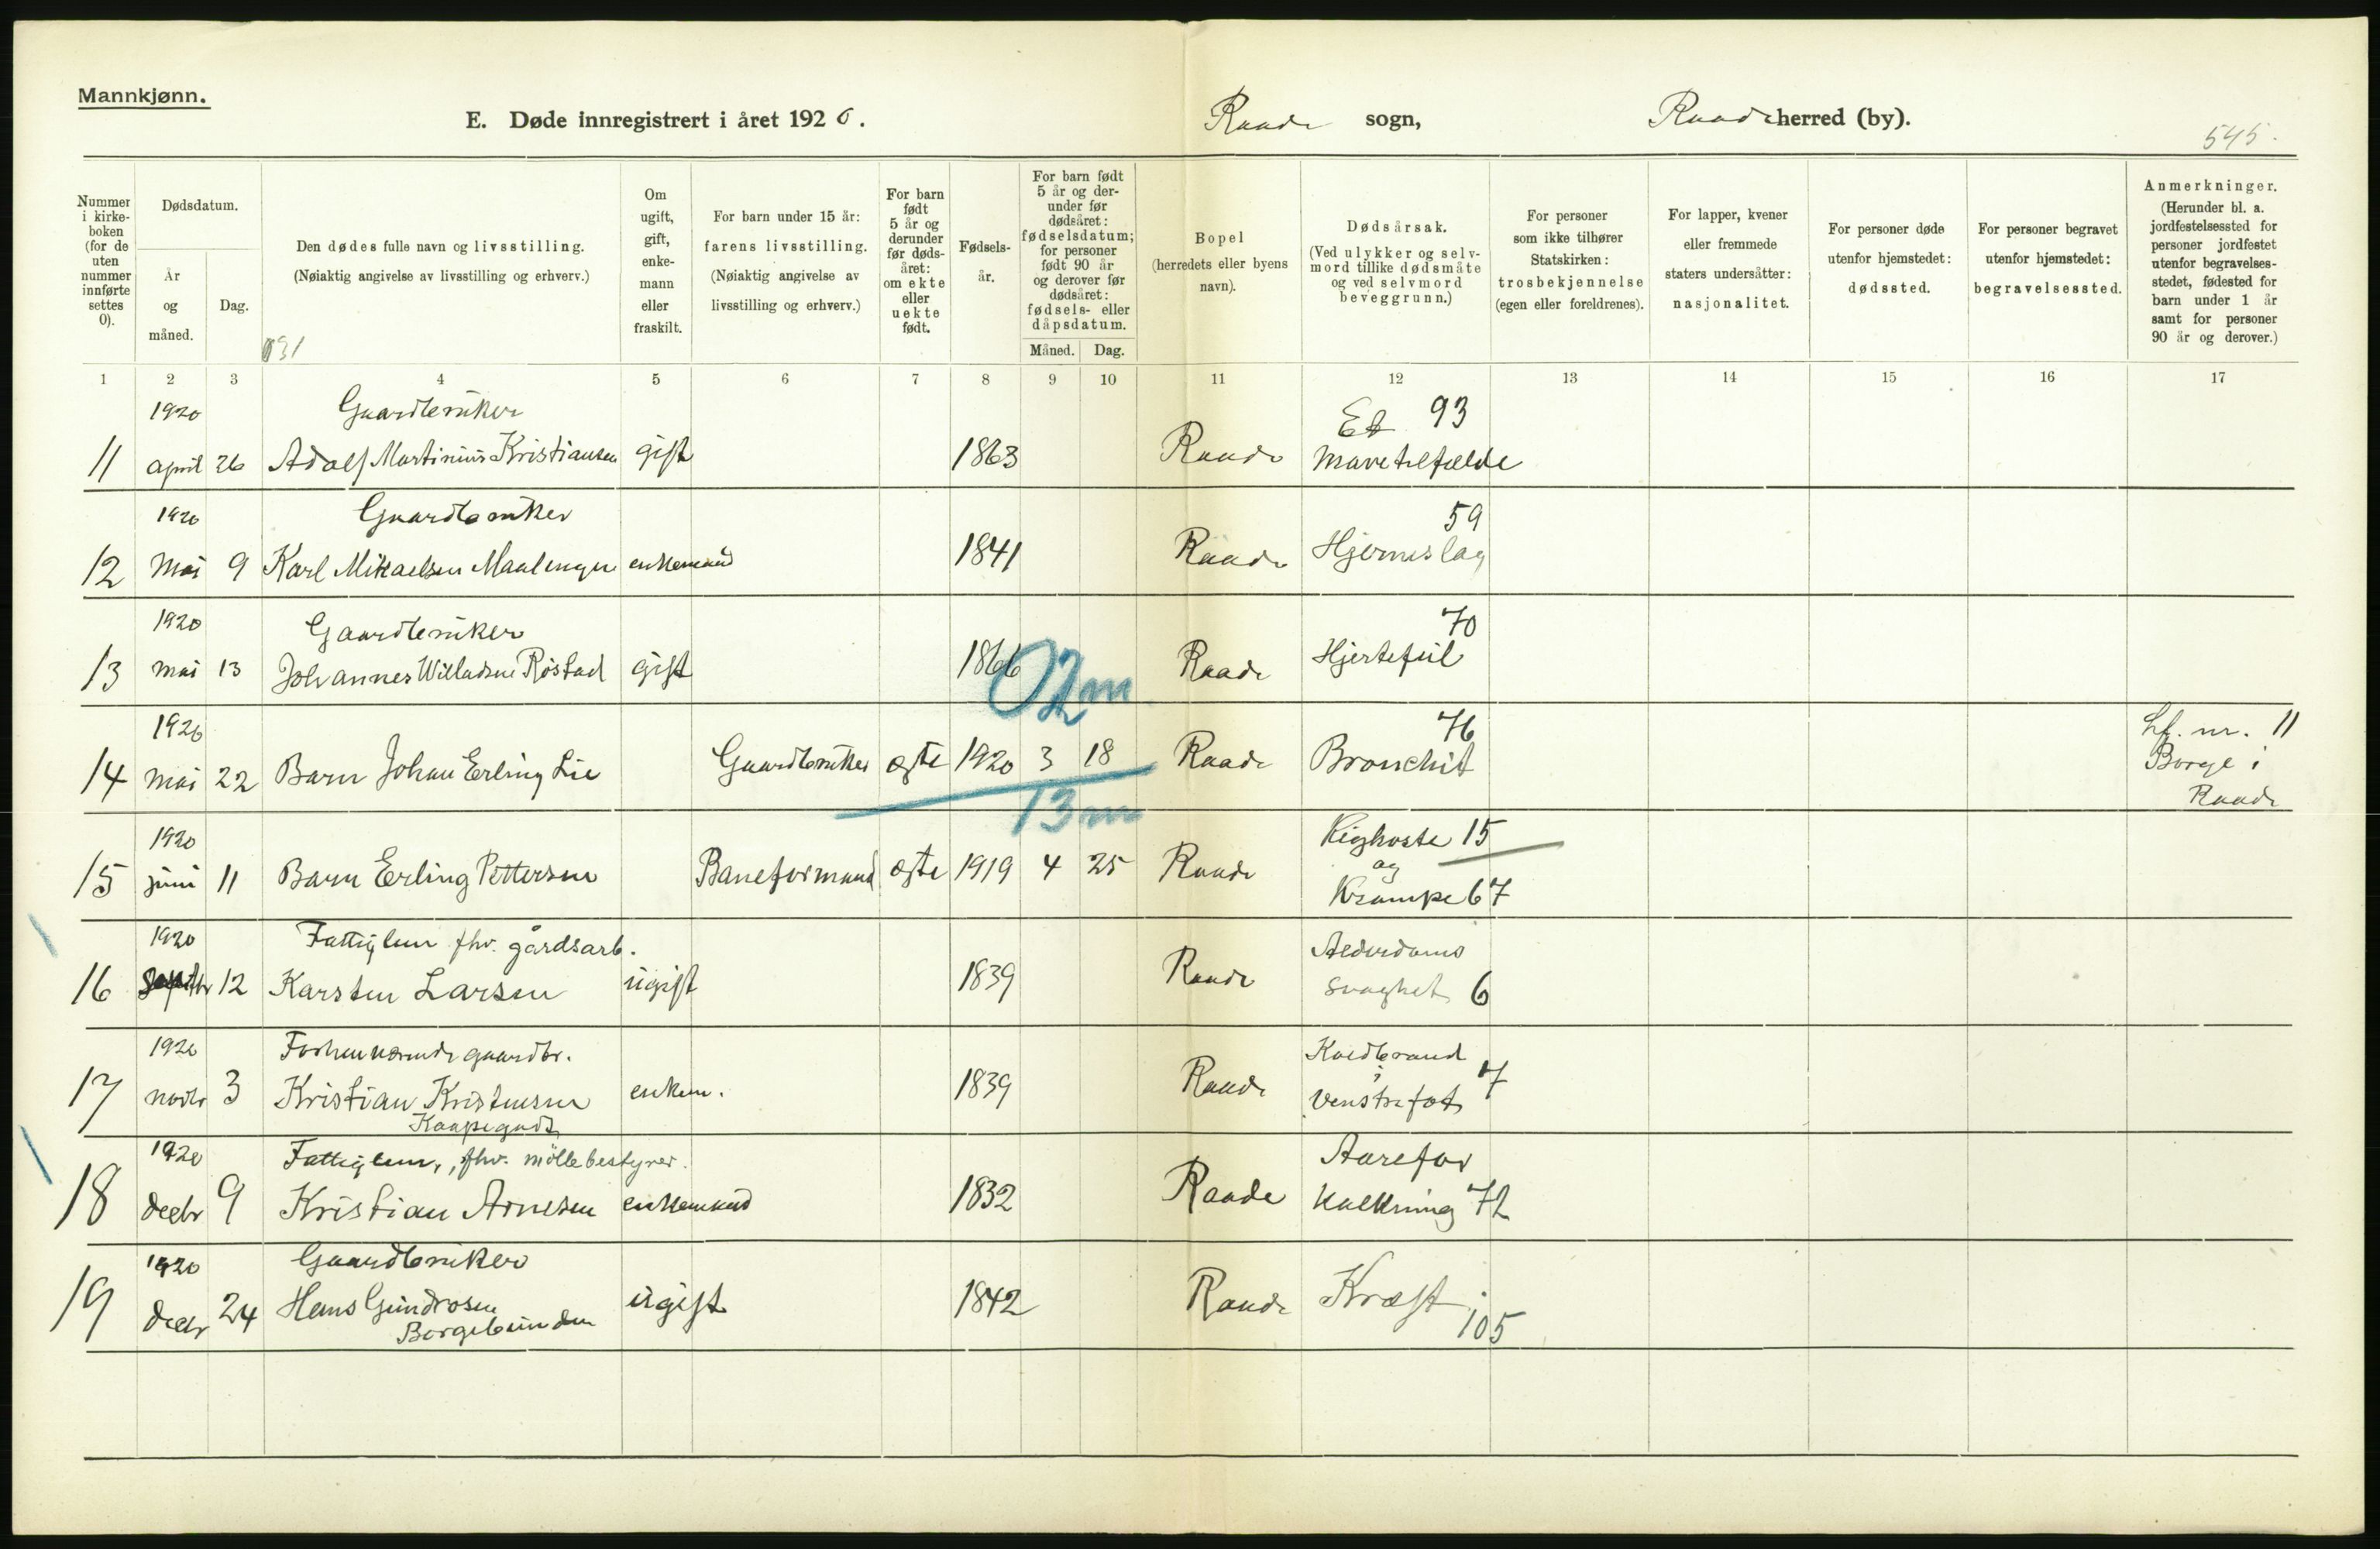 Mannkjønn.
E. Døde innregistrert i året 1920.
Raade sogn,
Raade herred (by).
545.
Nummer i kirke-boken (for de uten nummer innførte settes 0).
Dødsdatum.
År og måned.
Dag.
Den dødes fulle navn og livsstilling.
(Nøiaktig angivelse av livsstilling og erhverv.)
Om ugift, gift, enke-mann eller fraskilt.
For barn under 15 år: farens livsstilling.
(Nøiaktig angivelse av livsstilling og erhverv.)
For barn født 5 år og derunder før døds-året: om ekte eller uekte født.
Fødsels-år.
For barn født 5 år og der-under før dødsåret: fødselsdatum; for personer født 90 år og derover før dødsåret: fødsels- eller dåpsdatum.
Måned.
Dag.
Bopel
(herredets eller byens navn).
Dødsårsak.
(Ved ulykker og selv-mord tillike dødsmåte og ved selvmord beveggrunn.)
For personer som ikke tilhører Statskirken: trosbekjennelse (egen eller foreldrenes).
For lapper, kvener eller fremmede staters undersåtter: nasjonalitet.
For personer døde utenfor hjemstedet: dødssted.
For personer begravet utenfor hjemstedet: begravelsessted.
Anmerkninger.
(Herunder bl. a. jordfestelsessted for personer jordfestet utenfor begravelses-stedet, fødested for barn under 1 år samt for personer 90 år og derover.)
1 2 3 4 5 6 7 8 9 10 11 12 13 14 15 16 17
1920 Gaardbruker 93
11 april 26 Adolf Martinius Kristiansen gift 1863 Raade Mavetilfælde
1920 Gaardbruker 59
12 Mai 9 Karl Mikaelsen Maalengen enkemand 1841 Raade Hjerneslag
1920 Gaardbruker 70
13 mai 13 Johannes Willadsen Röstad gift 1866 Raade Hjertefeil
02m
1920 76 Lf. nr. 11
14 mai 22 Barn Johan Erling Lie Gaardbruker ægte 1920 3 18 Raade Bronchit Borge i
Raade
13m
1920 Kighoste 15
15 juni 11 Barn Erling Pettersen Baneformand ægte 1919 4 25 Raade og
Krampe 67
1920 Fattiglem fhv. gårdsarb. Alderdoms
16 Septbr 12 Karsten Larsen ugift 1839 Raade svaghet 6
1920 Forhenværende gaardbr. Koldbrand
17 novbr 3 Kristian Kristensen enkem. 1839 Raade i 7
venstre fot
1920 Fattiglem, fhv. möllebestyrer. Aarefor
18 decbr 9 Kristian Arnesen enkemand 1832 Raade kalkning 72
1920 Gaardbruker
19 decbr 24 Hans Gundrosen ugift 1842 Raade Kræft
Borgebunden 105